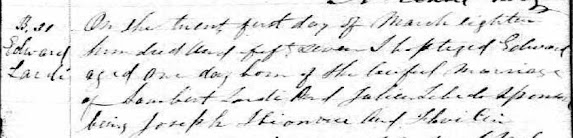 B. 21 On the twent first day of March eighteen
Edward hundred and fift seven I baptized Edward
Lardi aged one day born of the lawful marriage
of Lambert Lardi and Julia sponsors
being Joseph and